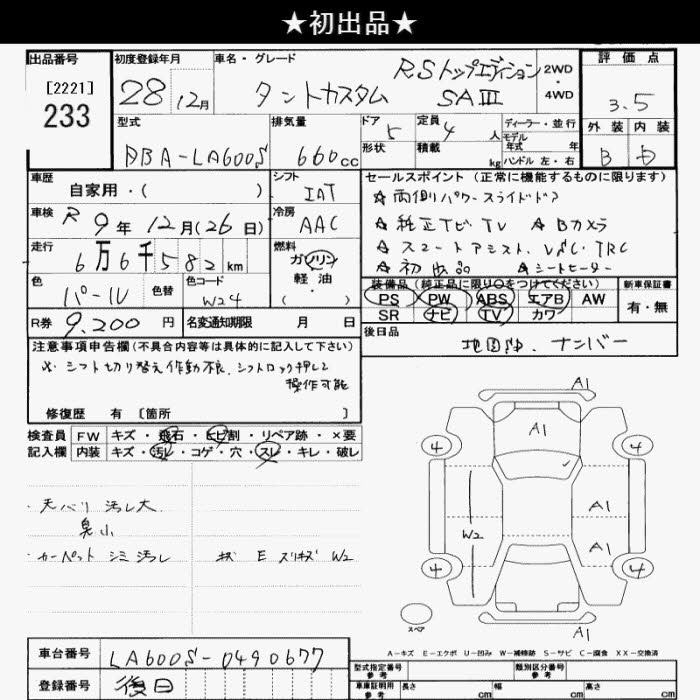 ★初出品★
出品番号 初度登録年月 車名・グレード 評価点
[2221]
233
28 12月
タントカスタム RSトップエディション SAⅢ
2WD・4WD
3.5
型式 排気量 ドア 定員 ディーラー・並行
DBA-LA600S 660cc 5 4人
形状 積載 kg モデル年式 年 ハンドル 左・右
外装 内装
B D
車歴 シフト セールスポイント (正常に機能するものに限ります)
自家用・( ) IAT
☆両側パワースライドドア
車検 R9年12月(26日) 冷房 AAC
☆純正ナビ TV ☆Bカメラ
走行 6万6千582km 燃料 ガソリン 軽油・
☆スマートアシスト、VSC・TRC
☆初出品 ☆シートヒーター
色 パール 色替 色コード W24
装備品(純正品に限り○をつけてください) 新車保証書
PS PW ABS エアB AW 有・無
SR ナビ TV カワ
R券 9,200円 名変通知期限 月 日
後日品 地図SD、ナンバー
注意事項申告欄(不具合内容等は具体的に記入して下さい)
※シフト切り替え作動不良、シフトロック押して
操作可能
修復歴 有 [箇所 ]
検査員 FW キズ・飛石・ヒビ割・リペア跡・×要
記入欄 内装 キズ・汚れ・コゲ・穴・スレ・キレ・破レ
天バリ 汚レ大
臭小
カーペット シミ 汚レ
キズ E スリキズ W2
A1
A1
4 4
A1
W2
A1
4 4
スペア
A1
A-キズ E-エクボ U-凹み W-補修跡 S-サビ C-腐食 XX-交換済
車台番号 LA600S-0490677
型式指定番号 参考 類別区分番号 参考
登録番号 後日
車庫証明用 参考 長さ cm 幅 cm 高さ cm